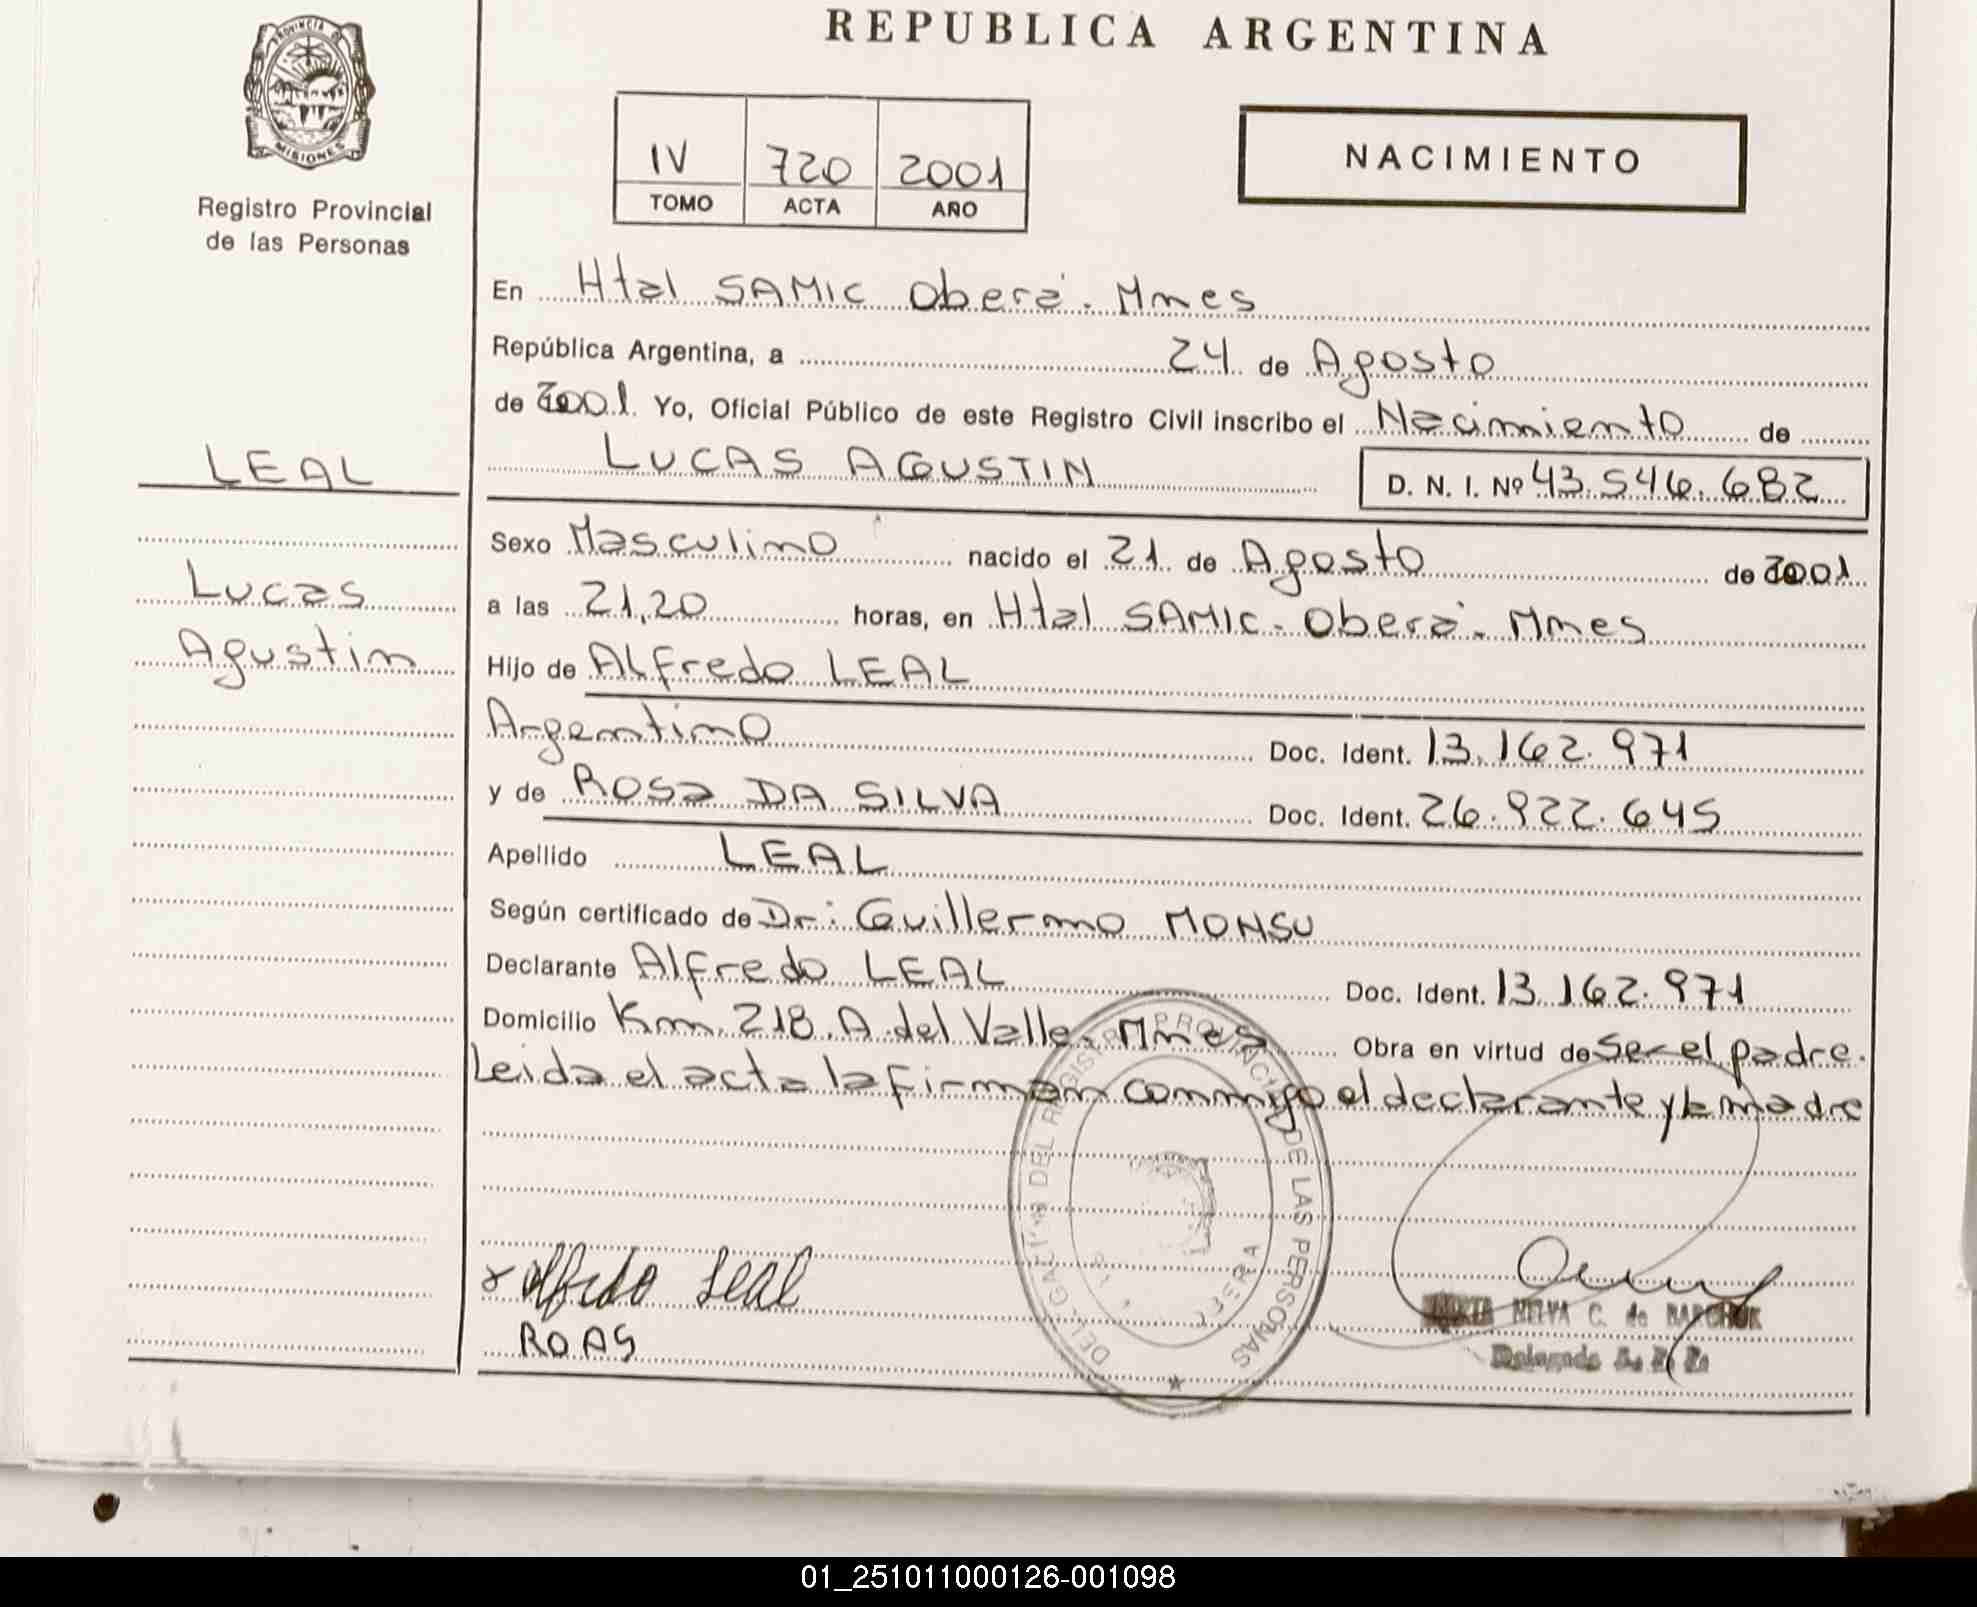 REPUBLICA ARGENTINA
PROVINCIA DE
MISIONES
Registro Provincial
de las Personas
IV 720 2001
TOMO ACTA AÑO
NACIMIENTO
En Htal SAMIC Oberá. Mnes
República Argentina, a 24 de Agosto
de 2001. Yo, Oficial Público de este Registro Civil inscribo el Nacimiento de
LUCAS AGUSTIN D. N. I. Nº 43.546.682
LEAL
Lucas
Agustin
Sexo Masculino nacido el 21 de Agosto de 2001
a las 21,20 horas, en Htal SAMIC - Oberá. Mnes
Hijo de Alfredo LEAL
Argentino Doc. Ident. 13.162.971
y de Rosa DA SILVA Doc. Ident. 26.922.645
Apellido LEAL
Según certificado de Dr: Guillermo MONSU
Declarante Alfredo LEAL Doc. Ident. 13.162.971
Domicilio Km 218. A. del Valle. Mnes Obra en virtud de Ser el padre.
Leida el acta la firman conmigo el declarante y la madre
DEL REGISTRO PROVINCIAL DE LAS PERSONAS
x Alfredo Leal
ROAS
NELVA C. de
Delegada
01_251011000126-001098